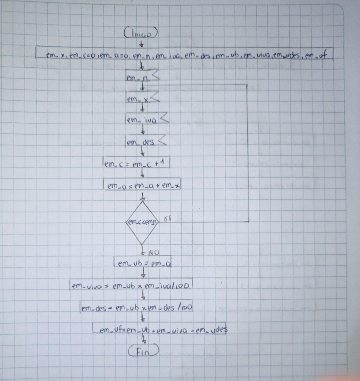 Inicio
em_x, em_c=0, em_a=0, em_n, em_iva, em_des, em_vb, em_viva, em_vdes, em_vf
em_n
em_x
em_iva
em_des
em_c = em_c + 1
em_a = em_a + em_x
em_c<em_n SI
NO
em_vb = em_a
em_viva = em_vb x em_iva/100
em_des = em_vb x em_des /100
em_vf = em_vb + em_viva - em_vdes
Fin